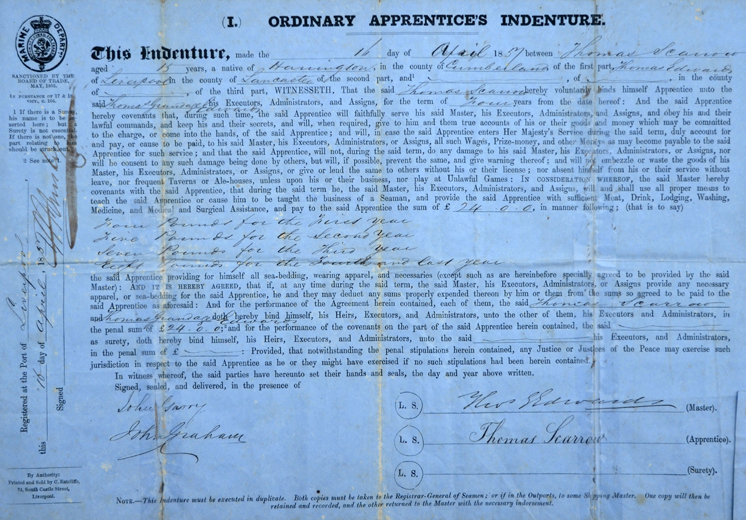 (I. ORDINARY APPRENTICE'S INDENTURE.
MARINE DEPART
SANCTIONED BY THE
BOARD OF TRADE,
This Indenture, made the 16 day of April 1857 between Thomas Scarrow
aged 15 years, a native of Harrington in the county of Cumberland of the first part, Thomas Edwards
of Liverpool in the county of Lancaster of the second part, and of in the county
of of the third part, WITNESSETH, That the said Thomas Scarrow hereby voluntarily binds himself Apprentice unto the
said Edwards his Executors, Administrators, and Assigns, for the term of Four years from the date hereof: And the said Apprentice
hereby covenants that, during such time, the said Apprentice will faithfully serve his said Master, his Executors, Administrators, and Assigns, and obey his and their
lawful commands, and keep his and their secrets, and will, when required, give to him and them true accounts of his or their goods and money which may be committed
to the charge, or come into the hands, of the said Apprentice; and will, in case the said Apprentice enters Her Majesty's Service during the said term, duly account for
and pay, or cause to be paid, to his said Master, his Executors, Administrators, or Assigns, all such Wages, Prize-money, and other Moneys as may become payable to the said
Apprentice for such service; and that the said Apprentice will not, during the said term, do any damage to his said Master, his Executors, Administrators, or Assigns, nor
will he consent to any such damage being done by others, but will, if possible, prevent the same, and give warning thereof; and will not embezzle or waste the goods of his
Master, his Executors, Administrators, or Assigns, or give or lend the same to others without his or their license; nor absent himself from his or their service without
leave, nor frequent Taverns or Ale-houses, unless upon his or their business, nor play at Unlawful Games: IN CONSIDERATION WHEREOF, the said Master hereby
covenants with the said Apprentice, that during the said term he, the said Master, his Executors, Administrators, and Assigns, will and shall use all proper means to
teach the said Apprentice or cause him to be taught the business of a Seaman, and provide the said Apprentice with sufficient Meat, Drink, Lodging, Washing,
Medicine, and Medical and Surgical Assistance, and pay to the said Apprentice the sum of £ 24-0-0, in manner following; (that is to say)
Four Pounds for the First year
Pounds for the Second year
Seven Pounds for the Third year
Pounds for the Fourth and last year
the said Apprentice providing for himself all sea-bedding, wearing apparel, and necessaries (except such as are hereinbefore specially agreed to be provided by the said
Master): AND IT IS HEREBY AGREED, that if, at any time during the said term, the said Master, his Executors, Administrators, or Assigns provide any necessary
apparel, or sea-bedding for the said Apprentice, he and they may deduct any sums properly expended thereon by him or them from the sums so agreed to be paid to the
said Apprentice as aforesaid: And for the performance of the Agreement herein contained, each of them, the said Thomas Scarrow
and Edwards doth hereby bind himself, his Heirs, Executors, and Administrators, unto the other of them, his Executors and Administrators, in
the penal sum of £24.0.0; and for the performance of the covenants on the part of the said Apprentice herein contained, the said
as surety, doth hereby bind himself, his Heirs, Executors, and Administrators, unto the said his Executors, and Administrators,
in the penal sum of £ : Provided, that notwithstanding the penal stipulations herein contained, any Justice or Justices of the Peace may exercise such
jurisdiction in respect to the said Apprentice as he or they might have exercised if no such stipulations had been herein contained.
In witness whereof, the said parties have hereunto set their hands and seals, the day and year above written.
Signed, sealed, and delivered, in the presence of
John
John Graham
L. S. Thos Edwards (Master).
L. S. Thomas Scarrow (Apprentice).
L. S. (Surety).
Registered at the Port of Liverpool
this 16 day of April 1857
Signed
By Authority:
Printed and Sold by C. Ratcliffe,
75, South Castle Street,
Liverpool.
NOTE.—This Indenture must be executed in duplicate. Both copies must be taken to the Registrar-General of Seamen; or if in the Outports, to some Shipping Master. One copy will then be
retained and recorded, and the other returned to the Master with the necessary indorsement.